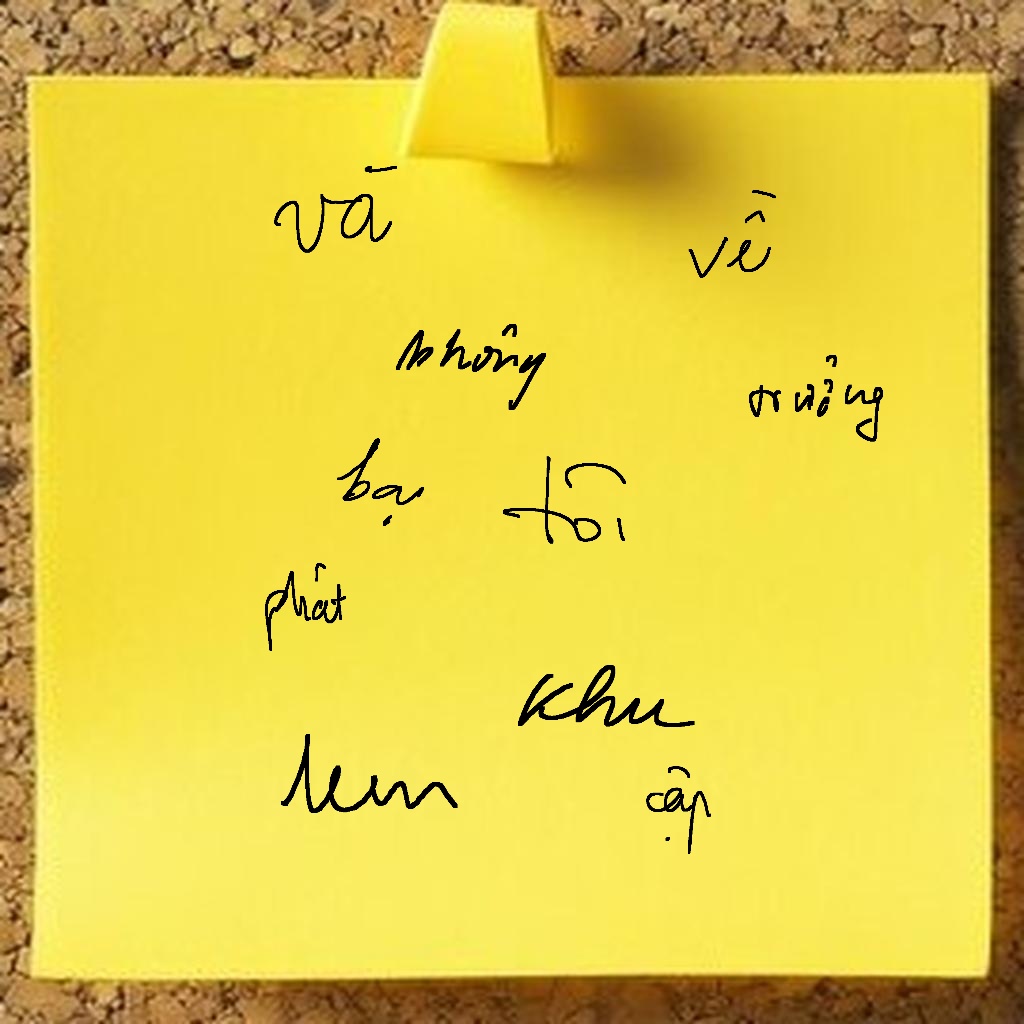 và về
không
trưởng
bạ tôi
phát
khu
cập